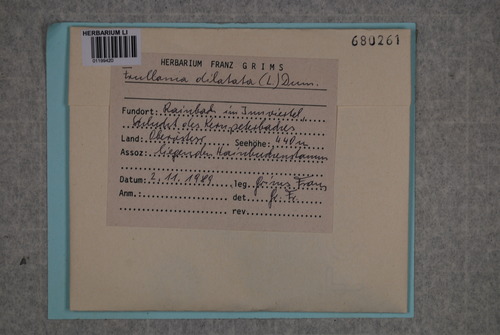 HERBARIUM LI
01199420
680261
HERBARIUM FRANZ GRIMS
Frullania dilatata (L.) Dum.
Fundort: Rainbach im Innviertel,
Schlucht des
Land: Oberösterr. Seehöhe: 440m
Assoz: liegender Hainbuchenstamm
Datum: 2.11.1989 leg. Grims Franz
Anm.: det. Gr. Fr.
rev.